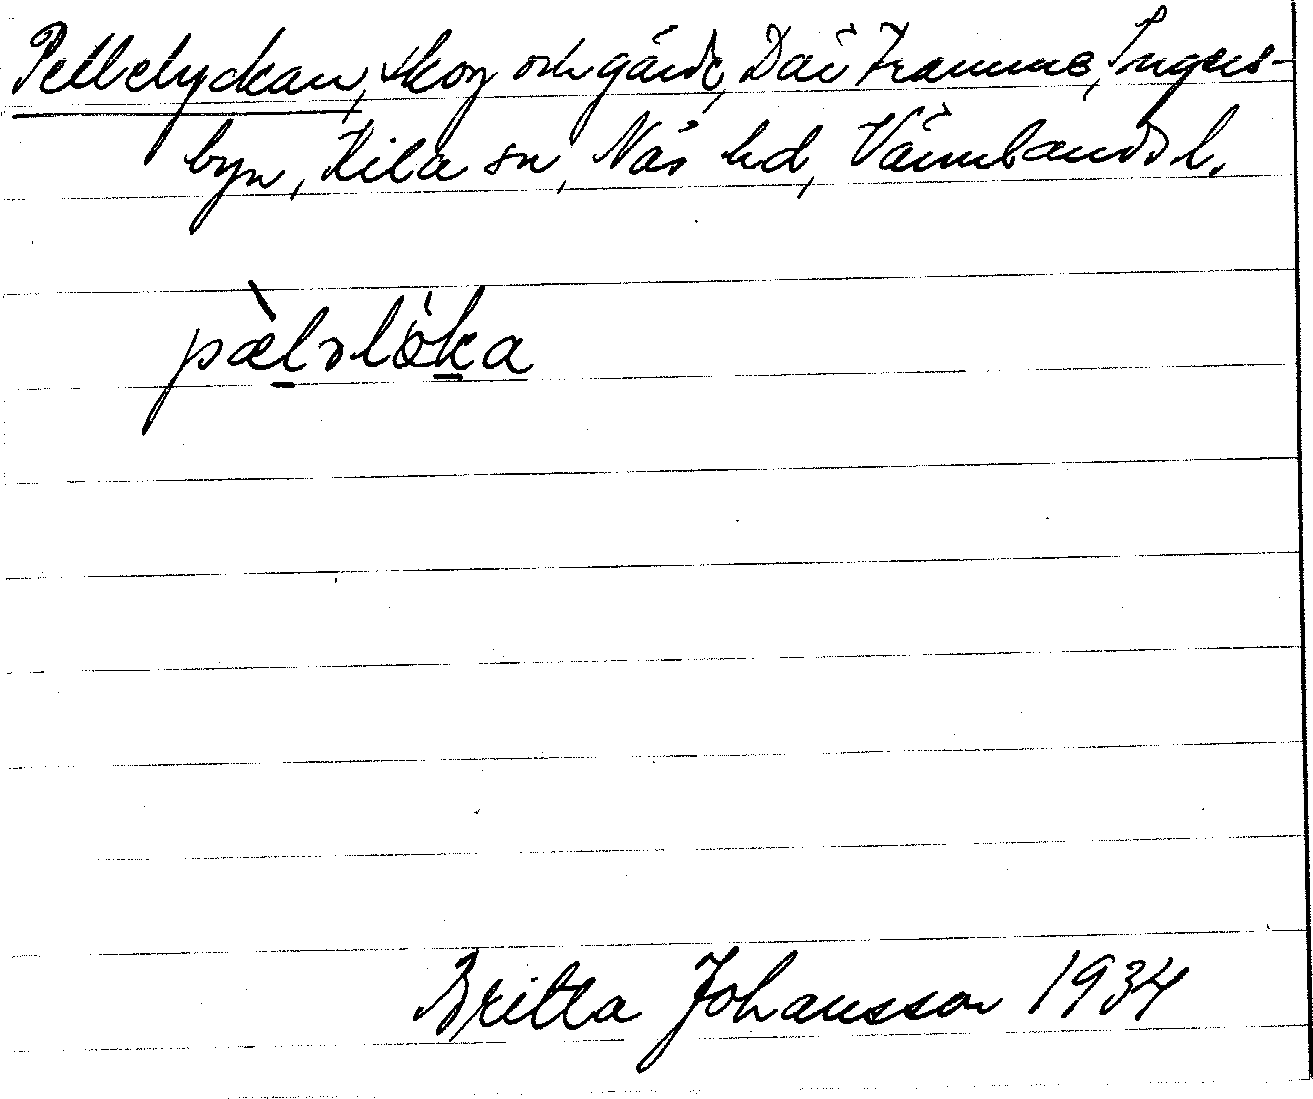 Pellelyckan, skog och gärde, Där Framme, Ingers-
byn, Kila sn, Näs hd, Värmlands l.
pæ̀lələ̀ka
Britta Johansson 1934